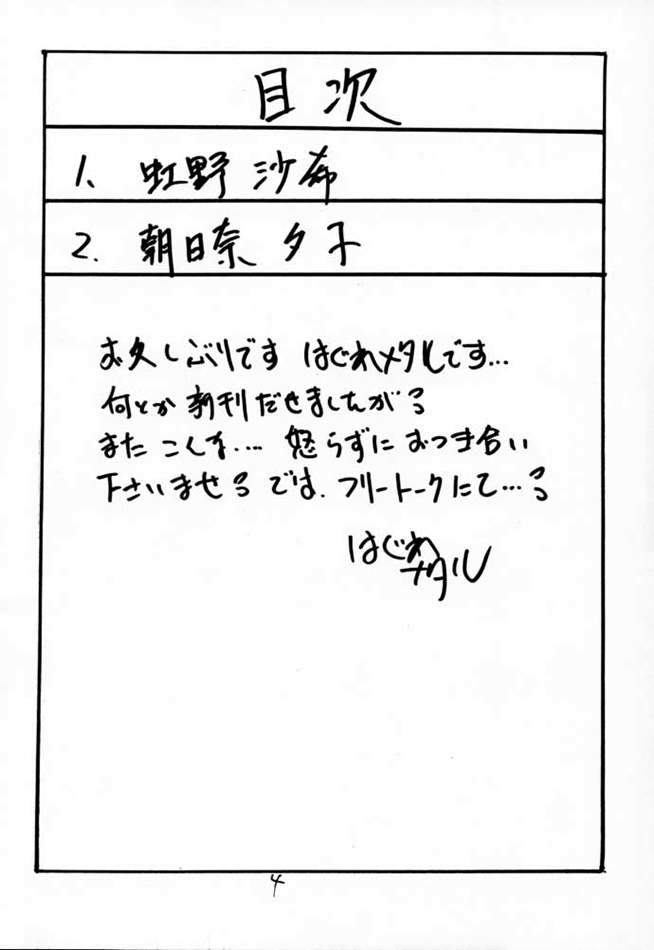 目次
1. 虹野 沙希
2. 朝日奈 夕子
お久しぶりです はぐれメタルです…
何とか 新刊だせましたがろ
また こんな… 怒らずに おつき合い
下さいませろ では、フリートークにて…ろ
はぐれ
メタル
4